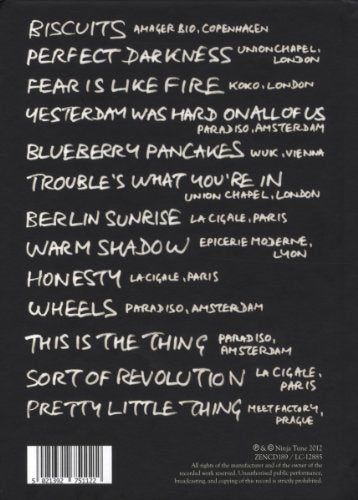 BISCUITS AMAGER BIO, COPENHAGEN
PERFECT DARKNESS UNION CHAPEL,
LONDON
FEAR IS LIKE FIRE KOKO, LONDON
YESTERDAY WAS HARD ON ALL OF US
PARADISO, AMSTERDAM
BLUEBERRY PANCAKES WUK, VIENNA
TROUBLE'S WHAT YOU'RE IN
UNION CHAPEL, LONDON
BERLIN SUNRISE LA CIGALE, PARIS
WARM SHADOW EPICERIE MODERNE,
LYON
HONESTY LA CIGALE, PARIS
WHEELS PARADISO, AMSTERDAM
THIS IS THE THING PARADISO,
AMSTERDAM
SORT OF REVOLUTION LA CIGALE,
PARIS
PRETTY LITTLE THING MEETFACTORY,
PRAGUE
℗ & © Ninja Tune 2012
ZENCD189 / LC-12885
All rights of the manufacturer and of the owner of the
recorded work reserved. Unauthorised public performance,
broadcasting, and copying of this record is strictly prohibited.
5 021392 751122